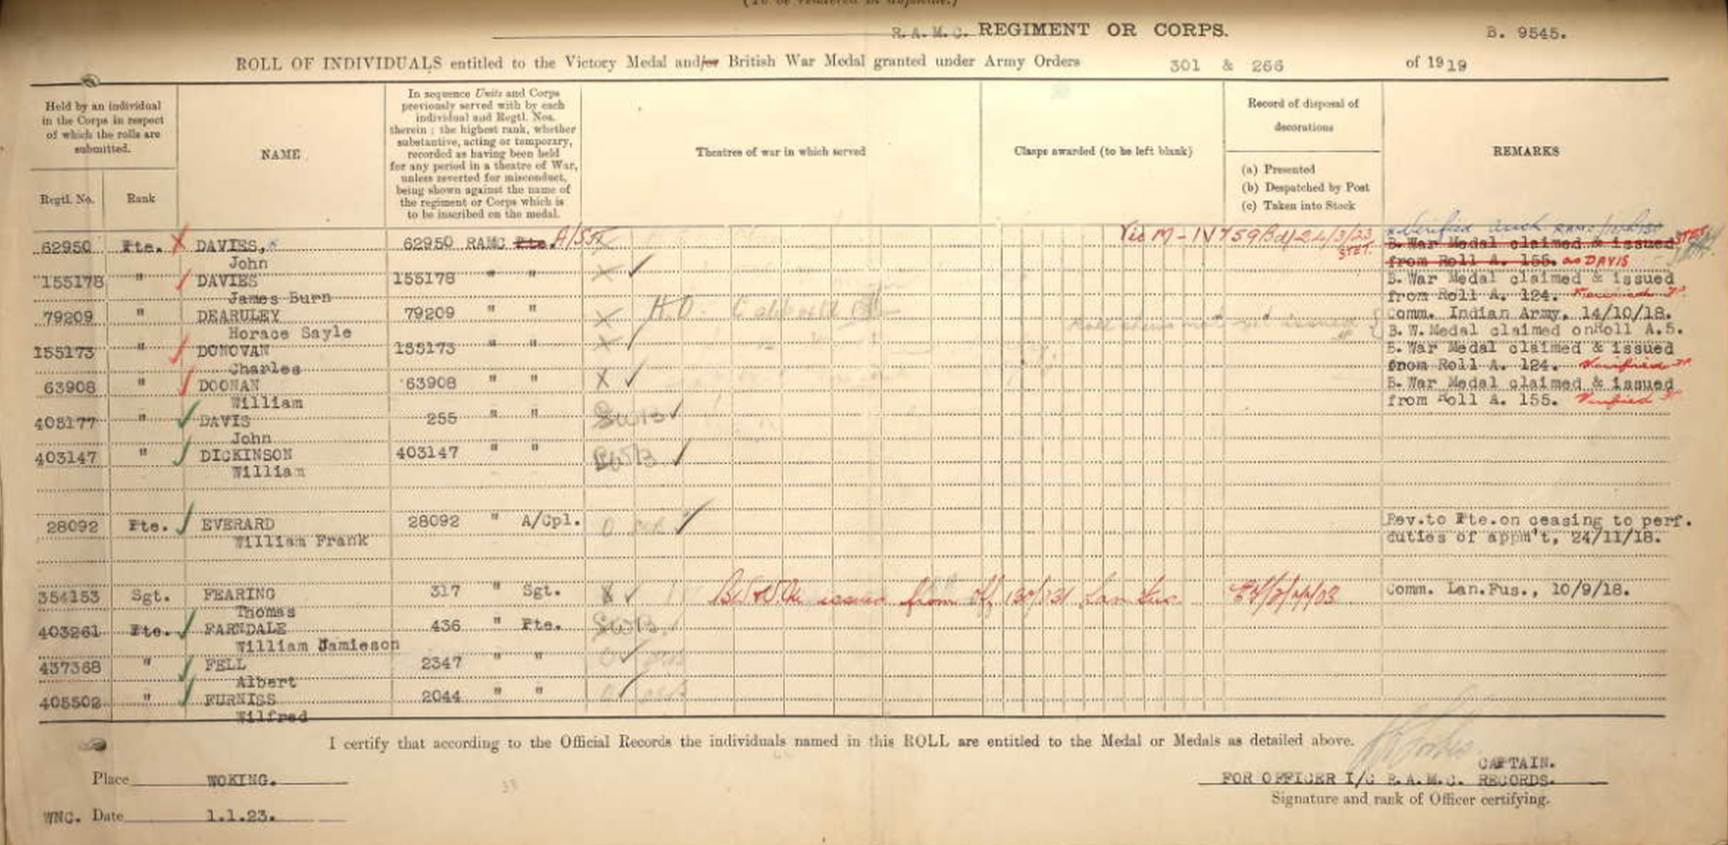 (To be rendered in duplicate.)
R.A.M.C. REGIMENT OR CORPS. B. 9545.
ROLL OF INDIVIDUALS entitled to the Victory Medal and/or British War Medal granted under Army Orders 301 & 266 of 1919
Held by an individual in the Corps in respect of which the rolls are submitted.
Regtl. No. Rank
NAME
In sequence Units and Corps previously served with by each individual and Regtl. Nos. therein; the highest rank, whether substantive, acting or temporary, recorded as having been held for any period in a theatre of War, unless reverted for misconduct, being shown against the name of the regiment or Corps which is to be inscribed on the medal.
Theatres of war in which served
Clasps awarded (to be left blank)
Record of disposal of decorations
(a) Presented
(b) Despatched by Post
(c) Taken into Stock
REMARKS
62950 Pte. X DAVIES, 62950 RAMC Pte. B. War Medal claimed & issued
John STET. from Roll A. 155. as DAVIS
155178 " DAVIES 155178 " " B. War Medal claimed & issued
James Burn from Roll A. 124.
79209 " DEARULEY 79209 Comm. Indian Army, 14/10/18.
Horace Sayle B.W.Medal claimed onRoll A.5.
155173 " DONOVAN 155173 B. War Medal claimed & issued
Charles from Roll A. 124. Verified
63908 " DOONAN 63908 " " X B. War Medal claimed & issued
William from Roll A. 155. Verified
405177 " DAVIS 255 " "
John
403147 " DICKINSON 403147 " "
William
28092 Pte. EVERARD 28092 " A/Cpl. Rev.to Pte.on ceasing to perf.
William Frank duties of appm't, 24/11/18.
354153 Sgt. FEARING 317 " Sgt. issued from Comm. Lan.Fus., 10/9/18.
Thomas
403261 Pte. FARNDALE 436 " Pte.
William Jamieson
437368 " FELL 2347 " "
Albert
405502 " FURNISS 2044 " "
Wilfred
I certify that according to the Official Records the individuals named in this ROLL are entitled to the Medal or Medals as detailed above.
CAPTAIN.
Place WOKING. FOR OFFICER I/C R.A.M.C. RECORDS.
Signature and rank of Officer certifying.
WNC. Date 1.1.23.